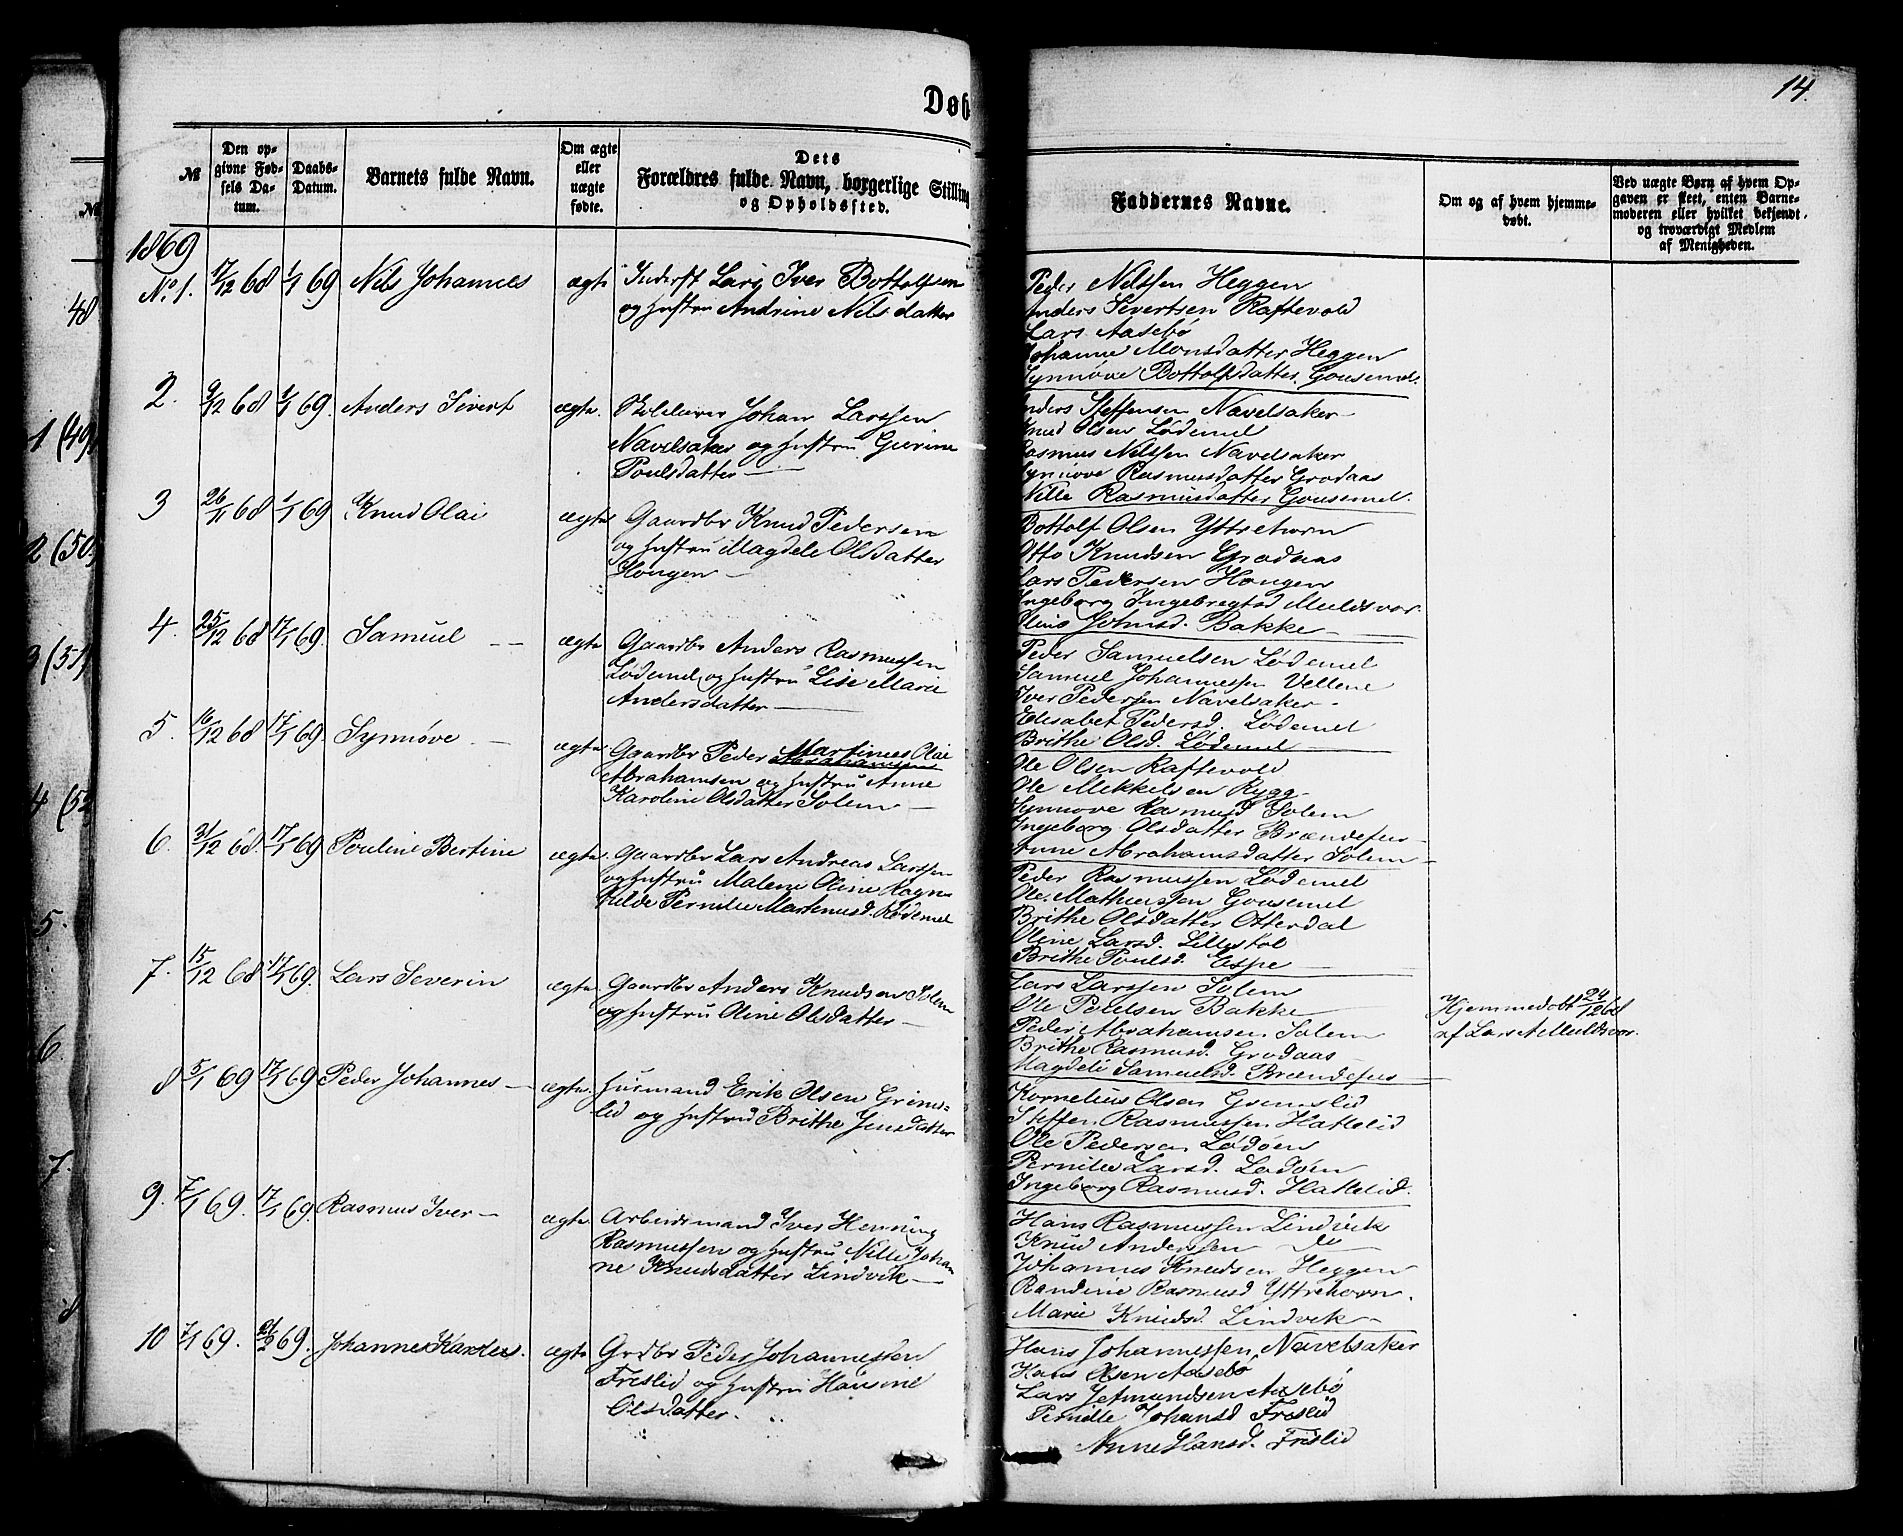 14.
Døb
№
Den op-
givne Fød-
sels Da-
tum.
Daabs-
Datum.
Barnets fulde Navn.
Om ægte
eller
uægte
fødte.
Dets
Forældres fulde Navn, borgerlige Stilling
og Opholdssted.
Faddernes Navne.
Om og af hvem hjemme-
døbt.
Ved uægte Børn af hvem Op-
gaven er skeet, enten Barne-
moderen eller hvilket bekjendt
og troværdigt Medlem
af Menigheden.
1869
No 1. 17/12 68 1/1 69 Nils Johannes ægte Inderst Lars Iver Bottolfsen
og Hustru Andrine Nilsdatter
Peder Nilssen Heggen
Anders Sivertsen Raftevold
Lars Aasebø
Johanne Monsdatter Heggen
Synnøve Bottolfsdatter Gousemel
2. 9/12 68 1/1 69. Anders Sivert ægte. Johan Larssen
Navelsaker og Hustru Gurine
Poulsdatter
Anders Steffensen Navelsaker
Knud Olsen Lødemel
Rasmus Nilssen Navelsaker
Synnøve Rasmusdatter Grodaas
Nille Rasmusdatter Gousemel.
3 26/11 68 1/1 69 Knud Olai ægte Gaardbr Knud Pedersen
og Hustru Magdele Olsdatter
Hougen
Bottolf Olsen Yttrehorn
Otto Knudsen Grodaas
Lars Pedersen Hougen
Ingeborg Ingebregtsd Muldsvor
Oline Johnsd. Bakke
4. 25/12 68 17/1 69. Samuel ægte Gaardbr Anders Rasmussen
Lødemel og Hustru Lise Marie
Andersdatter
Peder Samuelsen Lødemel
Samuel Johannessen Vellene
Iver Pedersen Navelsaker
Elisabet Pedersd. Lødemel
Brithe Olsd. Lødemel
5. 16/12 68 17/1 69. Synnøve ægte Gaardbr Peder Martinus Olai
Abrahamsen og Hustru Anne
Karoline Olsdatter Solem
Ole Olsen Raftevold
Ole Mekkelsen Rygg
Synnøve Rasmusd Solem
Ingeborg Olsdatter Brændefur
Anne Abrahamsdatter Solem
6. 31/12 68. 17/1 69 Pouline Bertine ægte. Gaardbr Lars Andreas Larssen
og Hustru Malene Oline Ragn-
hilde Pernille Martinusd. Lødemel
Peder Rasmussen Lødemel
Ole Mathiassen Gousemel
Brithe Olsdatter Otterdal
Oline Larsd. Lillestøl
Brithe Poulsd. Espe
7. 15/12 68. 17/1 69. Lars Severin ægte Gaardbr Anders Knudsen Solem
og Hustru Oline Olsdatter
Lars Larssen Solem
Ole Pedersen Bakke
Peder Abrahamsen Solem
Brithe Rasmusd. Grodaas
Magdeli Samuelsd. Brændefur
Hjemmedøbt 24/12 68
af Lars A. Muldsvor.
8 5/1 69 17/1 69 Peder Johannes ægte. Husmand Erik Olsen Grims-
lid og Hustru Brithe Jensdatter
Kornelius Olsen Grimslid
Steffen Rasmussen Hattelid
Ole Pedersen Lødøen
Pernille Larsd. Lødøen
Ingeborg Rasmusd. Hattelid.
9. 7/1 69. 17/1 69. Rasmus Iver ægte Arbeidsmand Iver Henning
Rasmussen og Hustru Nille Johan
ne Knudsdatter Lindvik
Hans Rasmussen Lindvik
Knud Anderssen do
Johannes Knudsen Heggen
Randine Rasmusd Yttrehorn.
Marie Knudsd. Lindvik
10 7/1 69. 21/2 69. Johannes ægte Grdbr Peder Johannessen
Frislid og Hustru Hansine
Olsdatter.
Hans Johannessen Navelsaker
Hans Olsen Aasebø
Lars Jetmundsen Aasebø
Pernille Johansd Frislid
Anne Hansd. Frislid
48
1 (49)
2 (50)
3 (51)
4 (52
5.
6
7.
8